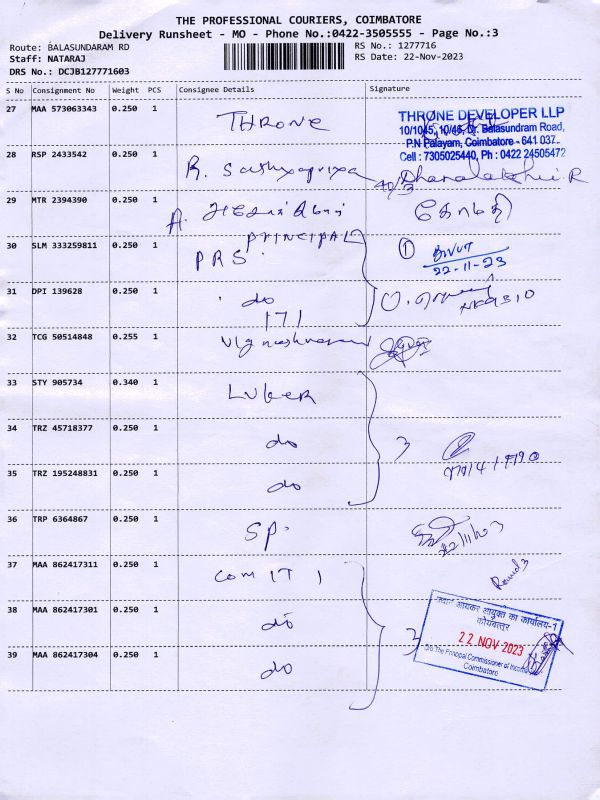 THE PROFESSIONAL COURIERS, COIMBATORE
Delivery Runsheet - MO - Phone No.:0422-3505555 - Page No.:3
Route: BALASUNDARAM RD
RS No.: 1277716
Staff: NATARAJ
RS Date: 22-Nov-2023
DRS No.: DCJB127771603
S No Consignment No Weight PCS Consignee Details Signature
27 MAA 573063343 0.250 1 THRONE
THRONE DEVELOPER LLP
10/1045, 10/46, Dr. Balasundram Road,
P.N Palayam, Coimbatore - 641 037.
Cell : 7305025440, Ph : 0422 24505472
28 RSP 2433542 0.250 1 R.
29 MTR 2394390 0.250 1 A. கோமதி
PRINCIPAL
30 SLM 333259811 0.250 1 PRS 1
22-11-23
31 DPI 139628 0.250 1 do
171
32 TCG 50514848 0.255 1
33 STY 905734 0.340 1 LUKER
34 TRZ 45718377 0.250 1 do 3
35 TRZ 195248831 0.250 1 do
36 TRP 6364867 0.250 1 SP.
37 MAA 862417311 0.250 1 Com IT 1
38 MAA 862417301 0.250 1 do
39 MAA 862417304 0.250 1 do 3
प्रधान आयकर आयुक्त का कार्यालय-1
कोयंबत्तूर
22 NOV 2023
O/o The Principal Commissioner of Income
Coimbatore